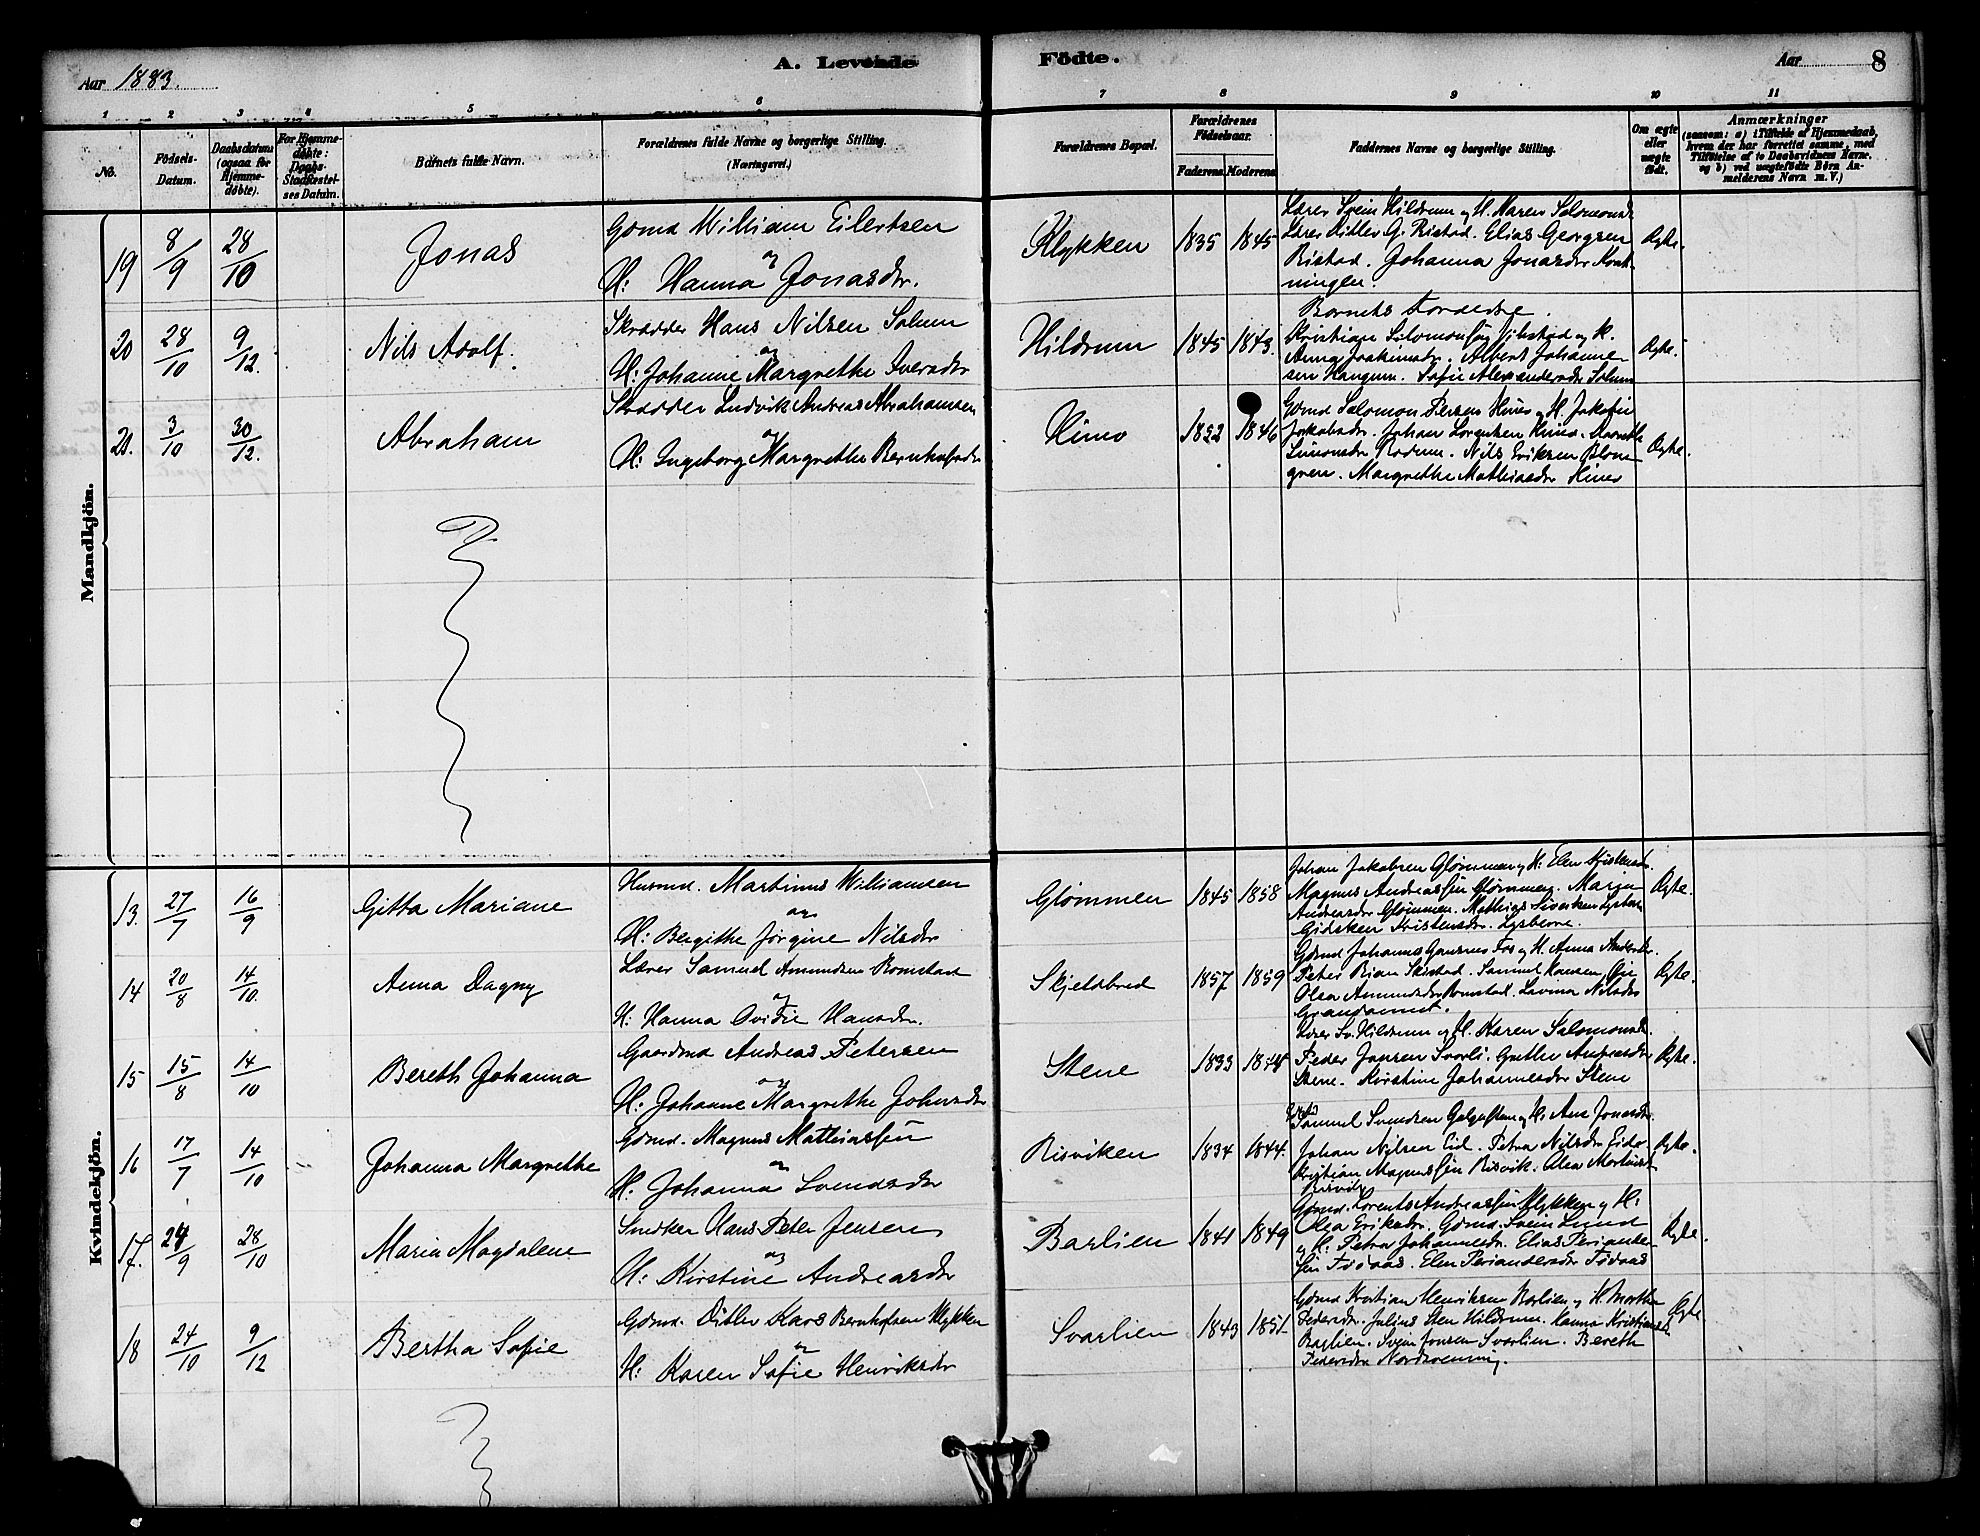 Aar 1883.
A. Levende Födte.
Aar 8
1 2 3 4 5 6 7 8 9 10 11
No.
Födsels-Datum.
Daabsdatum (ogsaa for Hjemmedøbte).
For Hjemmedöbte: Daabs Stadfæstelses Datum.
Barnets fulde Navn.
Forældrenes fulde Navne og borgerlige Stilling.
(Næringsvei.)
Forældrenes Bopæl.
Forældrenes Födselsaar.
Faderens Moderens
Faddernes Navne og borgerlige Stilling.
Om ægte eller uægte født.
Anmærkninger
(saasom: a) i Tilfælde af Hjemmedaab, hvem der har forrettet samme, med Tilføielse af to Daabsvidners Navne. og b) ved uægtefödte Börn Anmelderens Navn m. V.)
Mandkjön.
19 8/9 28/10 Jonas
Gdmd William Eilertsen
og
H: Hanna Jonasdr.
Klykken 1835 1845
Lærer Svein Hildrum og H. Maren Salomonsdr
Lærer Ditlev G. Ristad. Elias Georgsen
Ristad. Johanna Jonasdr
Ægte.
20 28/10 9/12. Nils Adolf.
Skrædder Hans Nilsen Solum
og
H: Johanne Margrethe Iversdr
Hildrum 1845 1843.
Barnets Forældre.
Kristian Salomonsen og H.
Anna Joakimsdr. Albert Johannesen
Sofie Alexandersdr Solum
Ægte.
21. 3/10 30/12. Abraham
Skrædder Ludvik Andreas Abrahamsen
og
H: Ingeborg Margrethe Bernhofsdr
Himo 1852 1846
Gdmd Salomon Persen Himo og H. Jakobine
Jakobsdr. Johan Lorentsen Himo.
Simonsdr Rodum. Nils Eriksen Blomgren. Margrethe Mathiasdr Himo
Ægte.
Kvindekjön.
13. 27/7 16/9 Gitta Mariane
Husmd. Martinus Williamsen
og
H: Bergithe Jørgine Nilsdr
Glömmen 1845 1858
Johan Jakobsen Glömmen og H: Elen Kristensdr.
Magnus Andreassen Glömmen. Marja
Andreasdr Glömmen. Mathias Sivertsen
Gidsken Kristensdr.
Ægte.
14 20/8 14/10. Anna Dagny
Lærer Samuel Amundsen Romstad
og
H: Hanna Ovidie Hansdr.
Skjelsbred 1857 1859
Gdmd Johannes Gansmo Fos og H. Anna Andersdr.
Peter Bjøru Skistad. Samuel Hansen Øie
Olea Amundsdr Romstad. Lavina Nilsdr
Ægte.
15 15/8 14/10 Bereth Johanna
Gaardmd Andreas Petersen
og
H: Johanne Margrethe Johnsdr
Stene 1833 1844
Lærer Sv. Hildrum og H. Karen Salomonsdr.
Peder Jonsen Svarli. Grethe Andreasdr
Stene. Kirstine Johannesdr Stene
Ægte.
16 17/7 14/10 Johanna Margrethe
Gdmd. Magnus Mathiassen
og
H. Johanna Svendsdr
Risviken 1834 1844.
Samuel Svendsen Galguften og H: Ane Jonasdr.
Johan Nilsen Eid. Petra Nilsdr Eide.
Kristian Magnussen Risvik. Olea
Risvik
Ægte.
17. 24/9 28/10 Maria Magdalene
Snedker Hans Peter Jensen
og
H: Kirstine Andreasdr
Barlien 1841 1849
Gdmd. Lorents Andreassen Klykken og H:
Olea Eriksdr. Gdmd. Svein Lund
og H: Petra Johannesdr. Elias Periandersen Fossaas. Elen Periandersdr Fossaas
Ægte.
18 24/10 9/12 Bertha Sofie
Gdmd. Ditlev Kaas Bernhofsen Klykken
og
H: Karen Sofie Henriksdr
Svarlien 1843 1851
Gdmd Kristian Henriksen Barlien og H. Marthe
Pedersdr. Julius Sten Hildrum. Hanna Kristiansdr
Barlien. Svein Jonsen Svarlien. Bereth
Pedersdr
Ægte